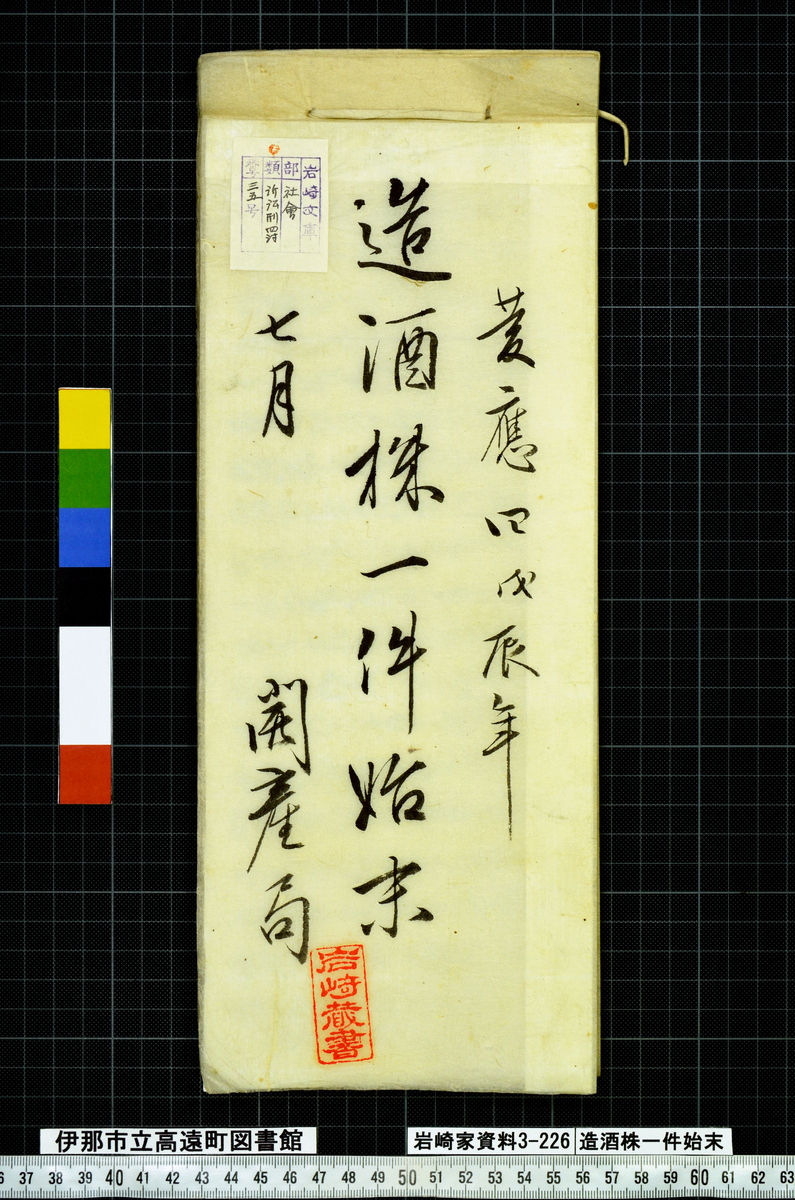 慶應四戊辰年
造酒株一件始末
七月
開産局
岩崎文庫
部 社會
類 訴訟刑罰
第三五号
岩崎蔵書
伊那市立高遠町図書館
岩崎家資料3-226 造酒株一件始末
36 37 38 39 40 41 42 43 44 45 46 47 48 49 50 51 52 53 54 55 56 57 58 59 60 61 62 63